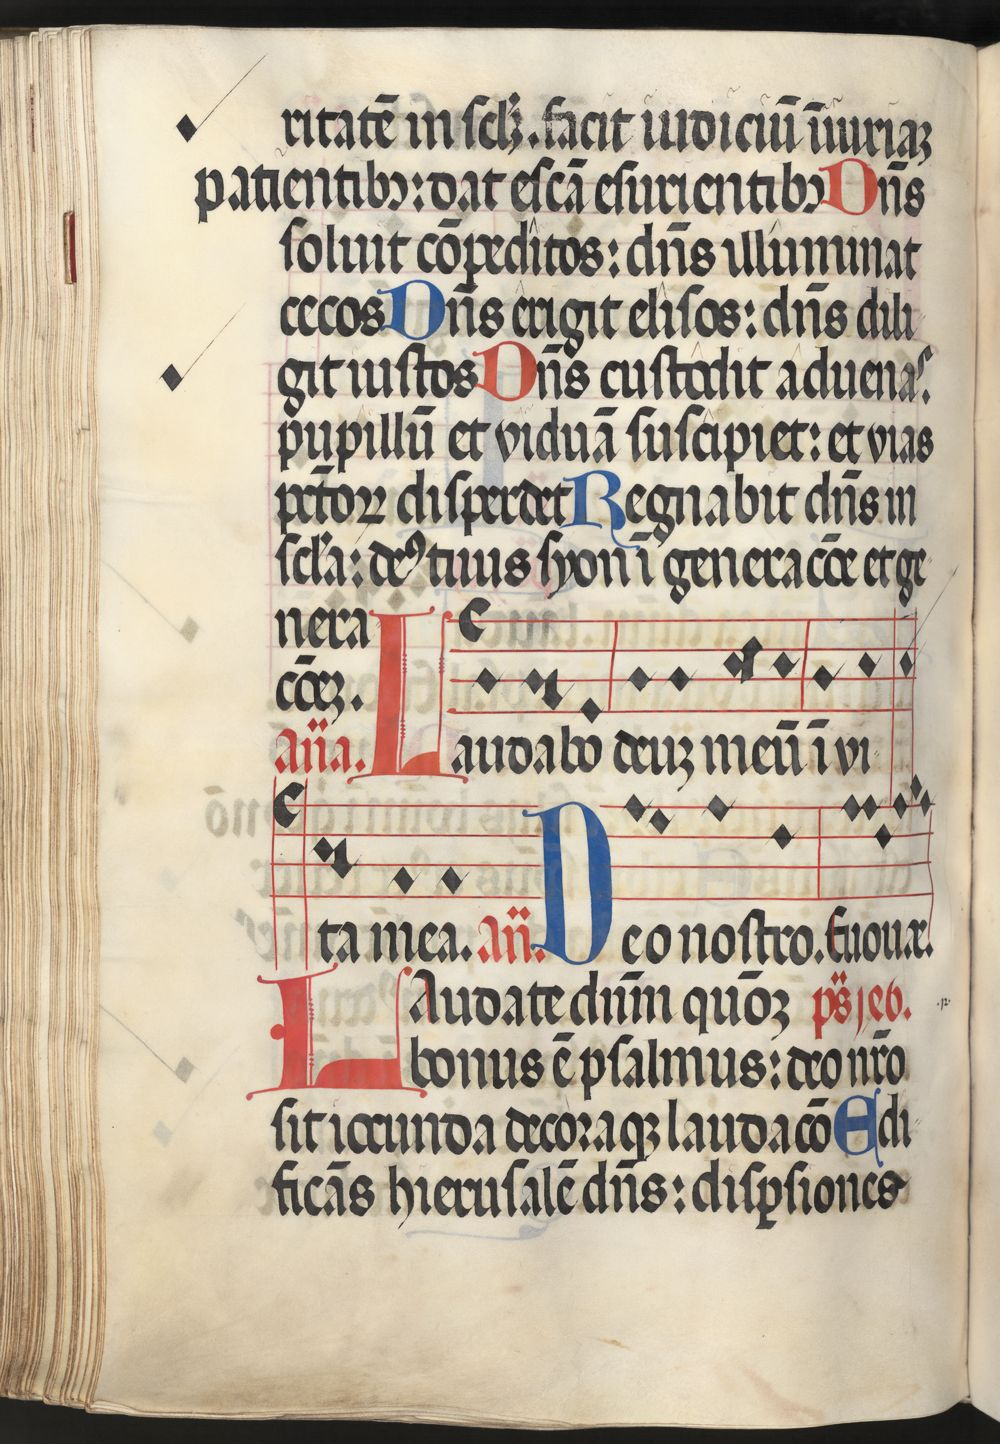 ritatē in sclꝫ. facit iudiciū iniuriaꝫ
patientibꝫ: dat escā esurientibꝫ Dn̄s
soluit cōpeditos: dn̄s illuminat
cecos Dn̄s erigit elisos: dn̄s dili
git iustos Dn̄s custodit aduenas.
pupillū et viduā suscipiet: et vias
pctōꝝ disperdet Regnabit dn̄s in
scl̄a: deꝰ tuus syon ī generacōe et ge
nera
cōeꝫ.
Aña. Laudabo deuꝫ meū ī vi
ta mea. Añ. Deo nostro. Euouae.
LAudate dn̄m quōꝫ ps̄ jeb.
bonus ē psalmus: deo nr̄o
sit iocunda decoraqꝫ laudacō Edi
ficās hierusalē dn̄s: dispsiones